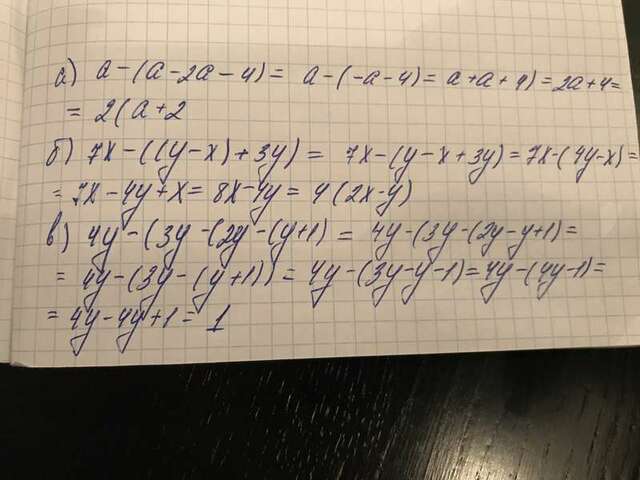 а) a-(a-2a-4)= a-(-a-4)= a+a+4)= 2a+4=
= 2(a+2
б) 7x-((y-x)+3y)= 7x-(y-x+3y)=7x-(4y-x)=
= 7x-4y+x= 8x-4y= 4(2x-y)
в) 4y-(3y-(2y-(y+1)= 4y-(3y-(2y-y+1)=
= 4y-(3y-(y+1))= 4y-(3y-y-1)=4y-(4y-1)=
= 4y-4y+1= 1